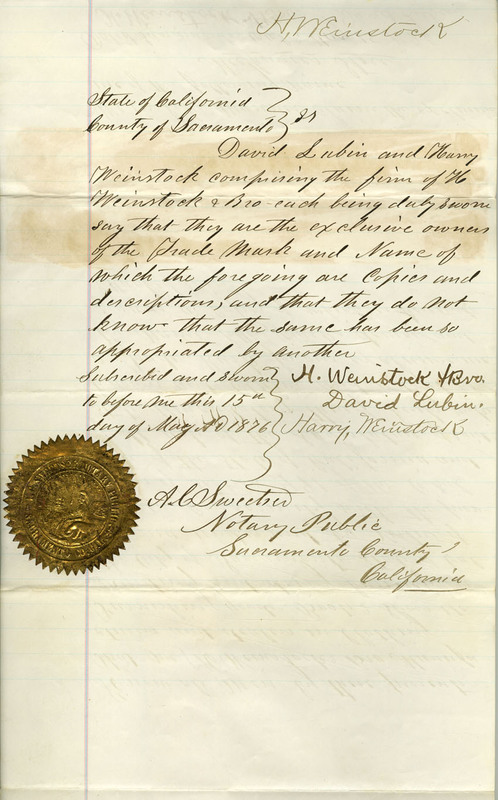 H, Weinstock
State of California
County of Sacramento } ss
David Lubin and Harry
Weinstock comprising the firm of H
Weinstock & Bro each being duly sworn
say that they are the exclusive owners
of the Trade Mark and Name of
which the foregoing are Copies and
descriptions, and that they do not
know that the same has been so
appropriated by another
Subscribed and sworn
to before me this 15th
day of May AD 1876
H. Weinstock & Bro.
David Lubin.
Harry, Weinstock
A C Sweetser
Notary Public
Sacramento County
California